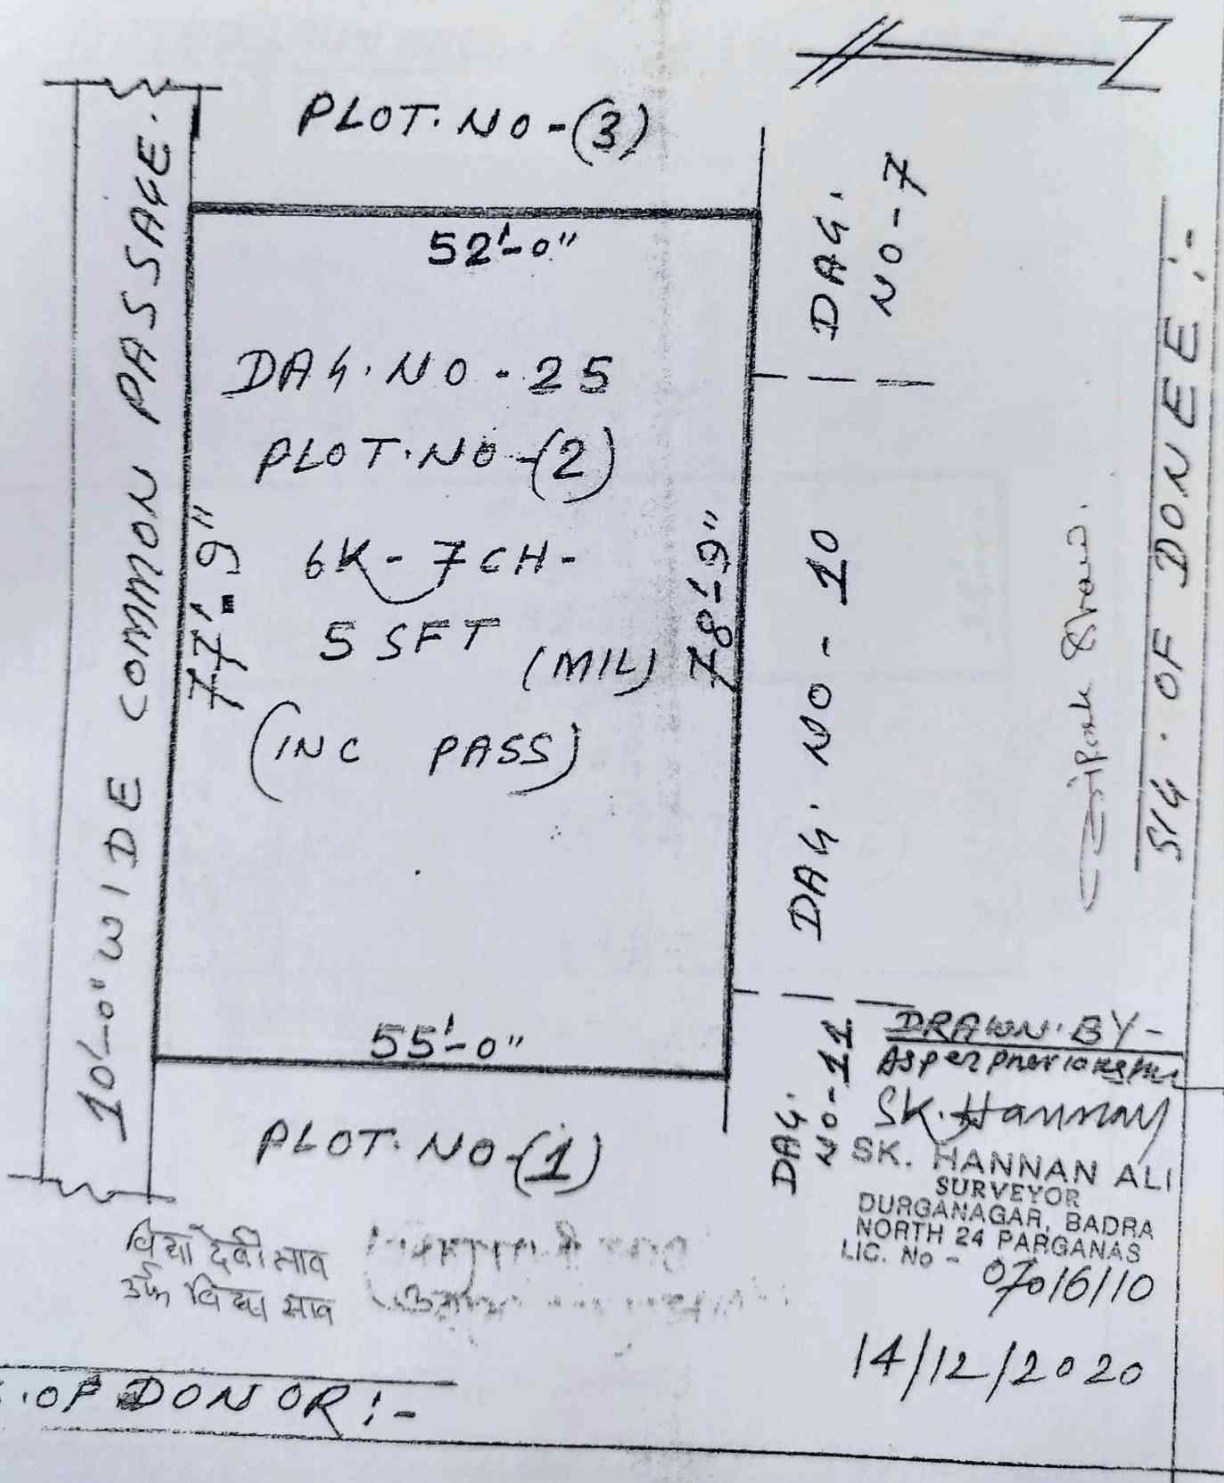 PLOT. NO-(3)
10'-0" WIDE COMMON PASSAGE.
52'-0"
DAG. NO - 25
PLOT. NO-(2)
6K - 7CH -
5 SFT (MIL)
(INC PASS)
77'-9"
78'-9"
55'-0"
PLOT. NO-(1)
DAG.
NO-7
DAG. NO-10
DAG.
NO-11
SIG. OF DONEE :-
DRAWN. BY -
As per
SK. Hannan
SK. HANNAN ALI
SURVEYOR
DURGANAGAR, BADRA
NORTH 24 PARGANAS
LIC. No - 07016/10
14/12/2020
विद्या देवी साव
उर्फ विद्या साव
. OF DONOR :-